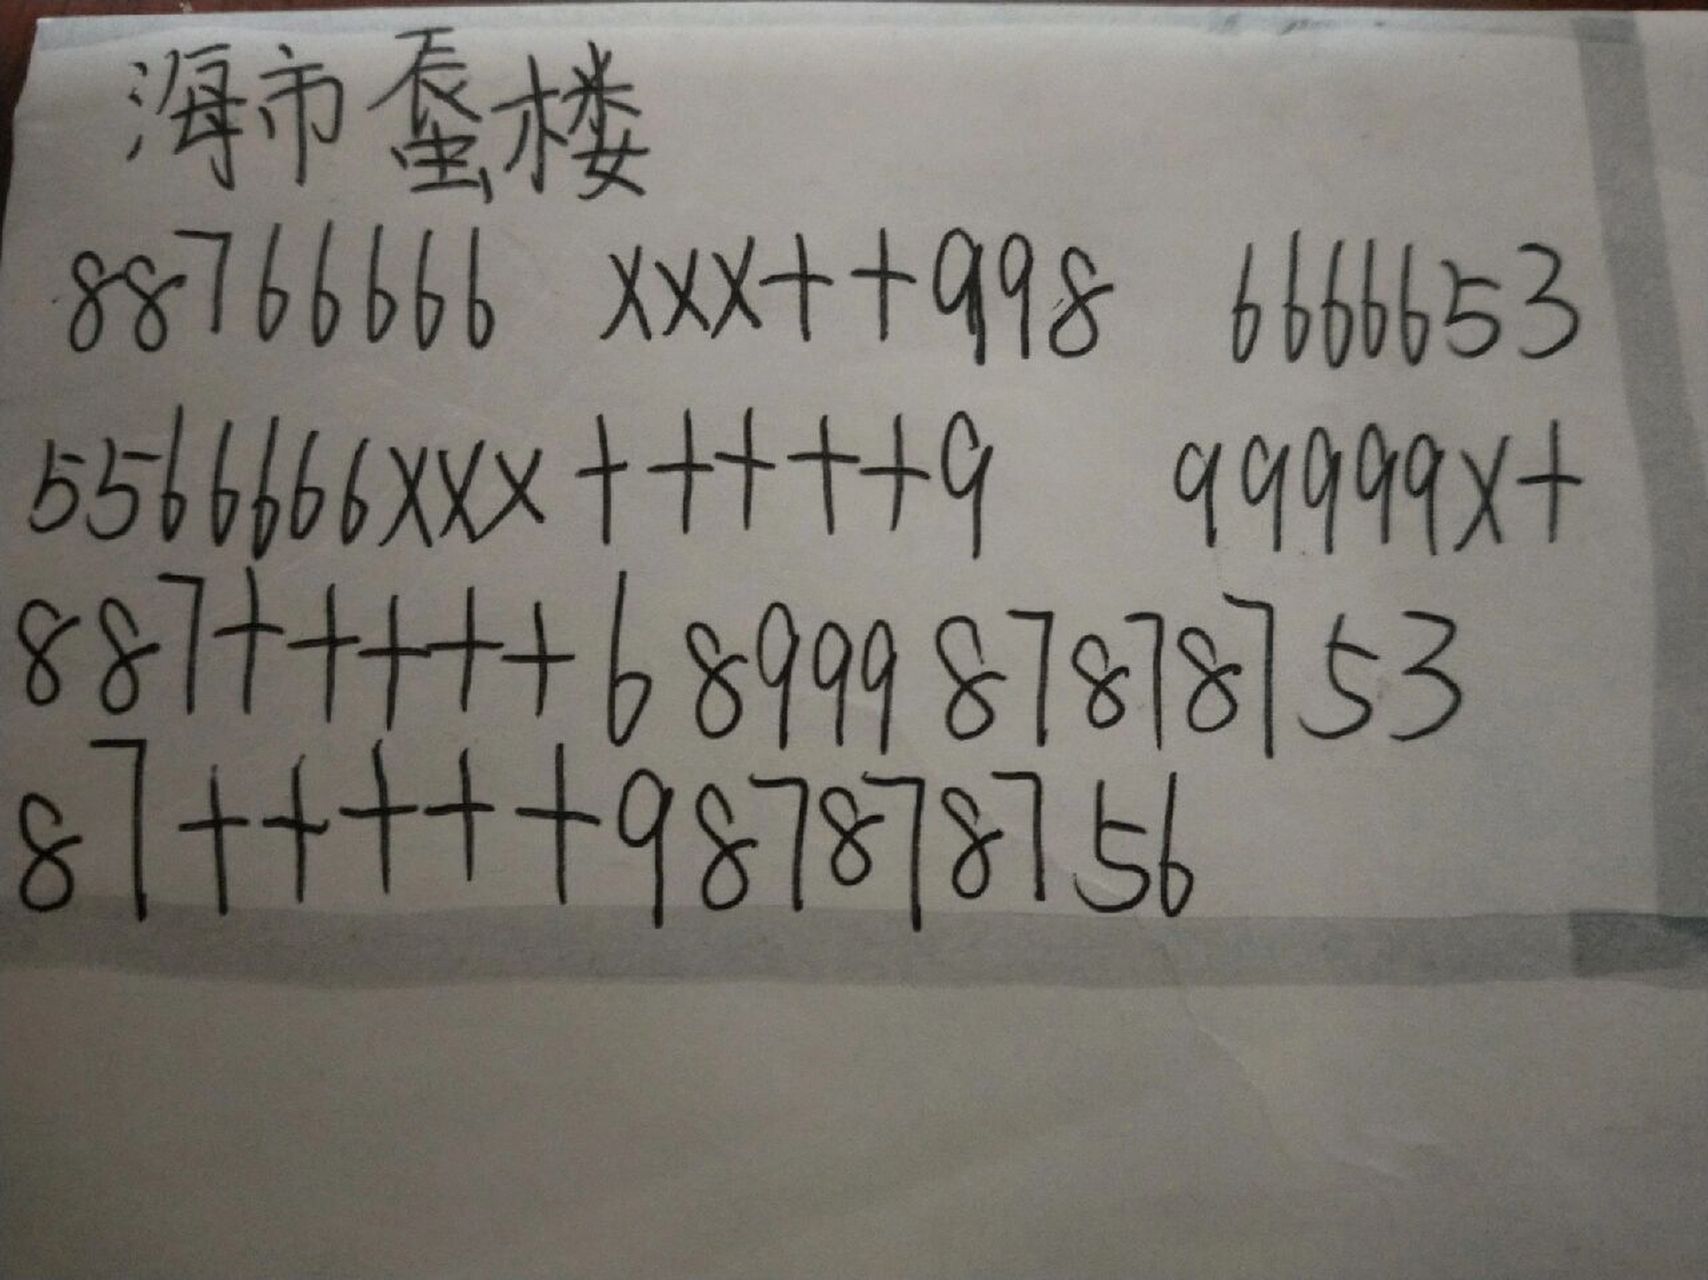 海市蜃楼
88766666 xxx++998 6666653
5566666xxx+++++9 99999x+
887+++++6 8999 878787 53
87+++++9 878787 56